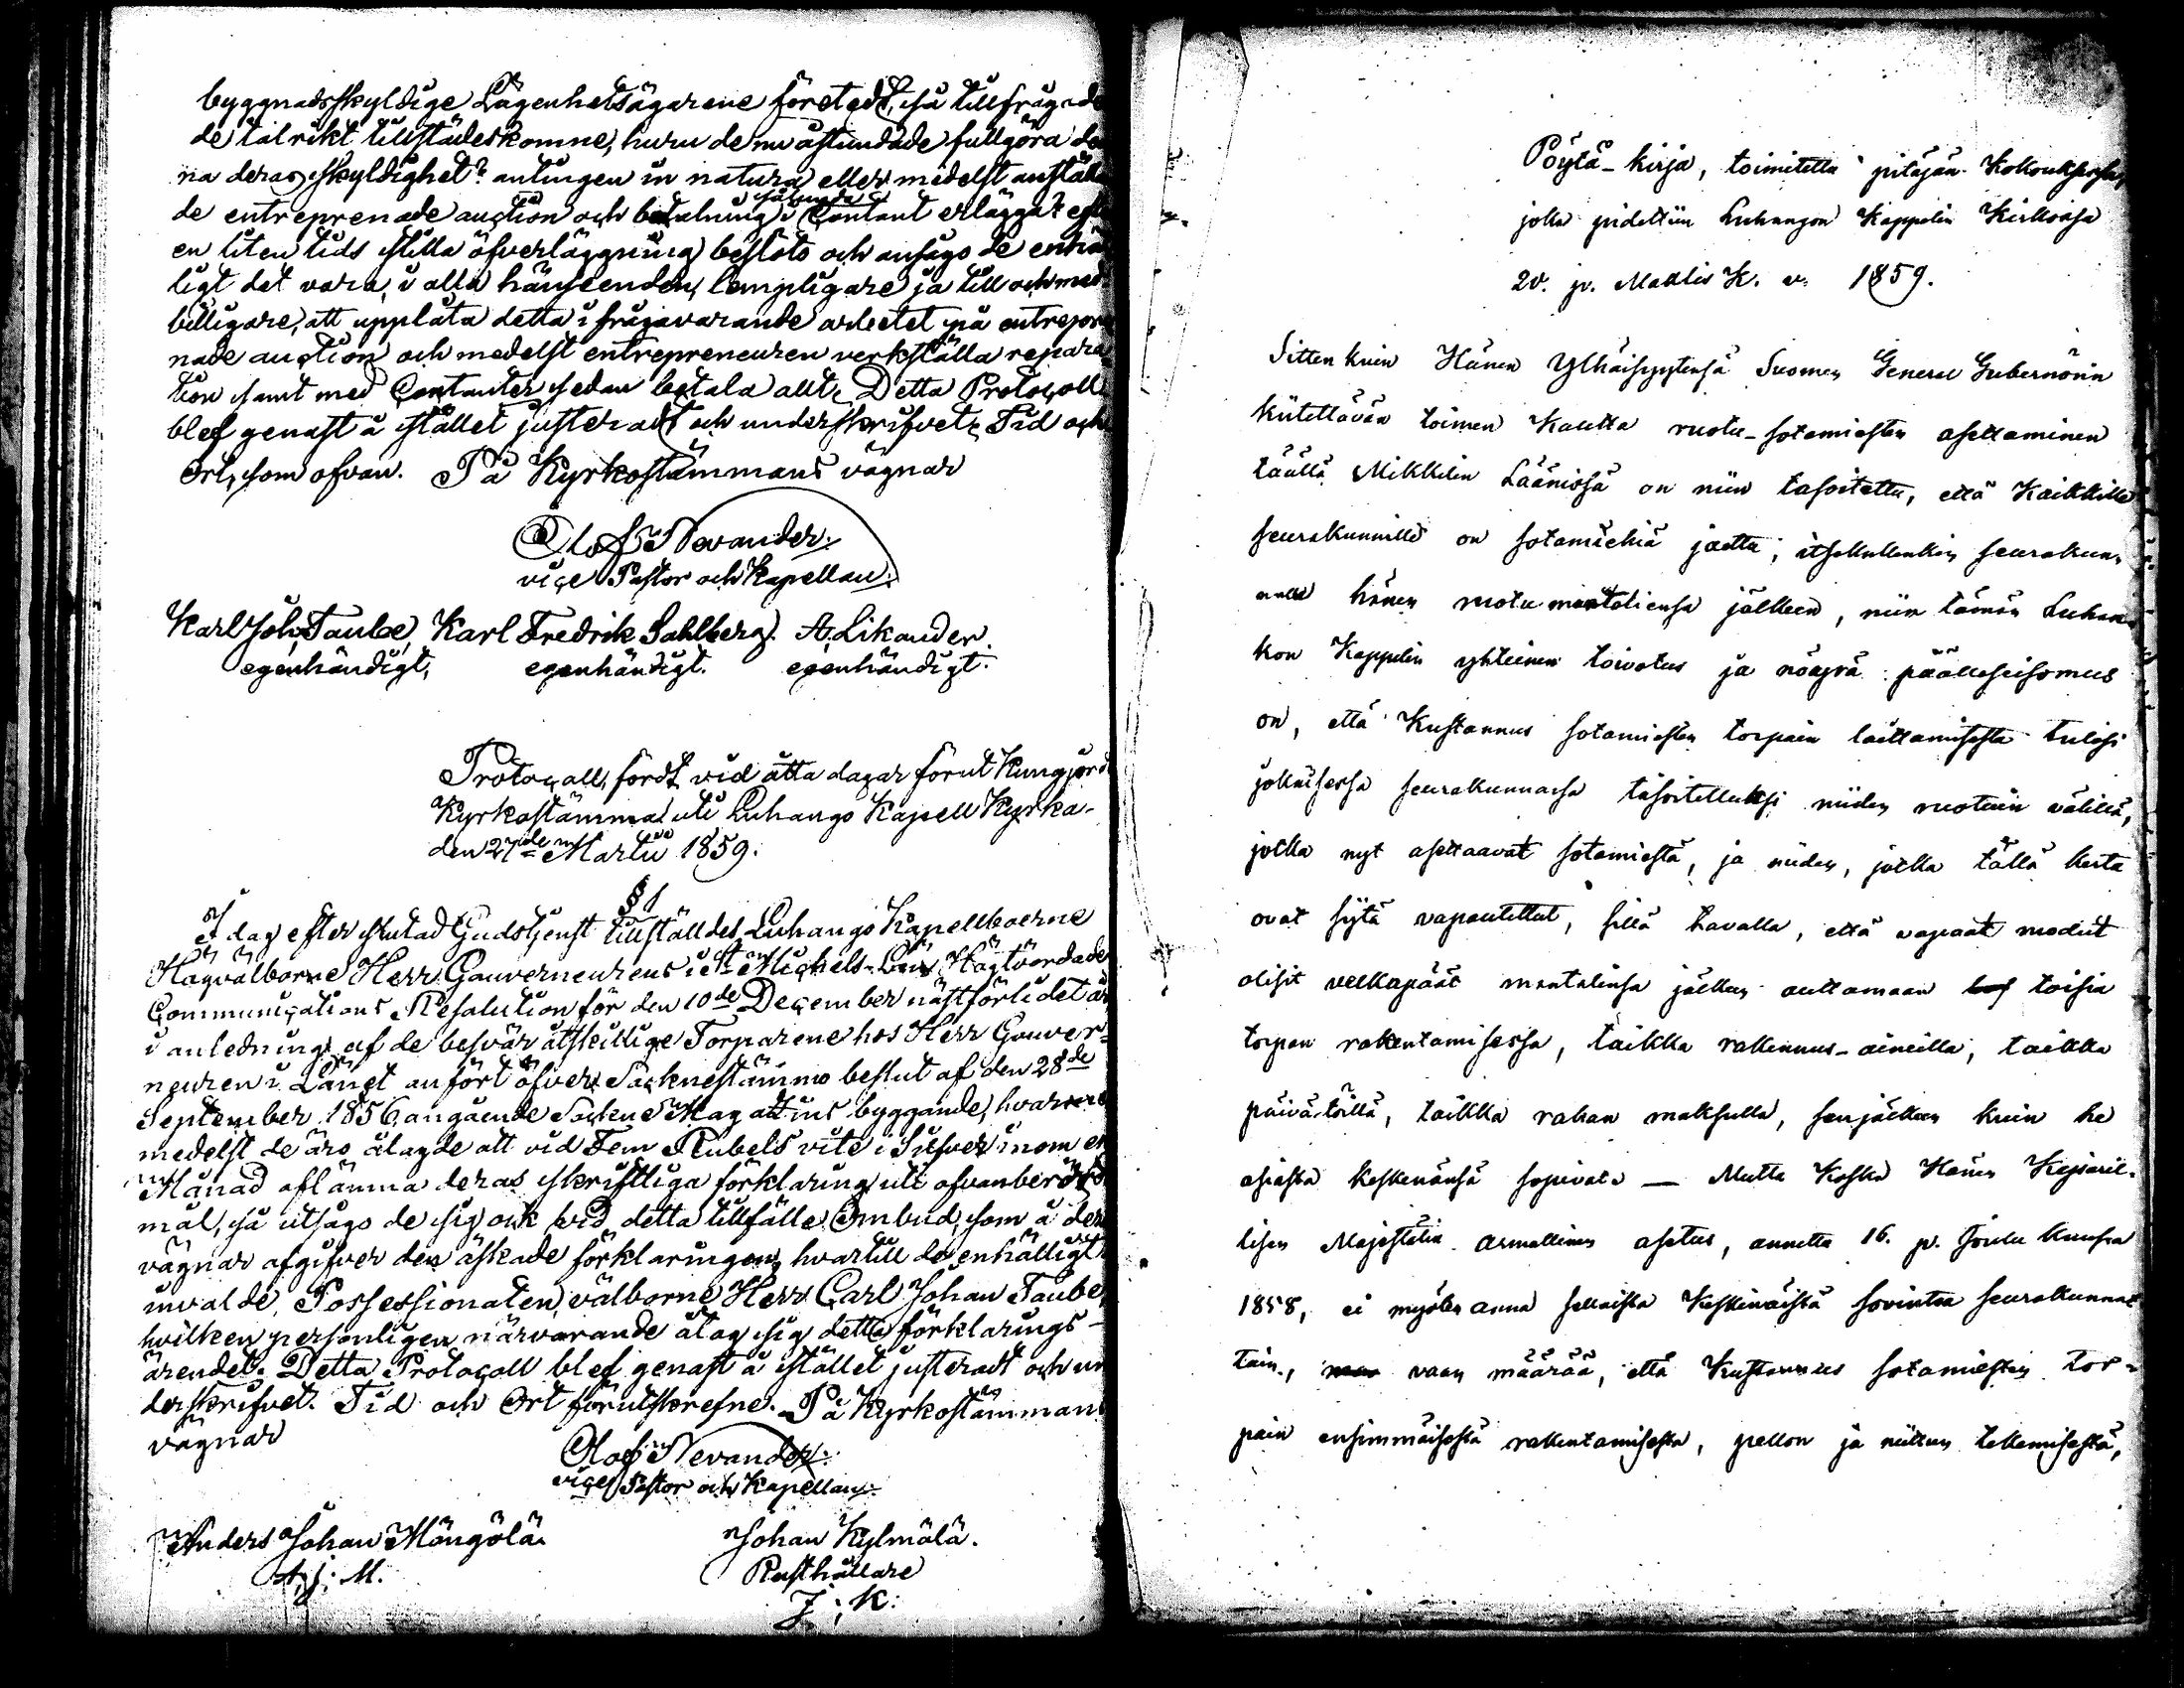 byggnadsskyldige Lägenhetsägarene företedt, så tillfrågade
de talrikt tillstädeskomne, huru de nu åstundade fullgöra de
na deras skyldighet? antingen in natura eller medelst anstäl
de entreprenade auction och betalning i Contant erläggat eft
en liten tids stilla öfverläggning beslöts och ansågs de enhä
ligt det vara, i alla hänseenden, lempligare ja till och med
billigare, att upplåta detta i frågavarande arbetet på entrepre
nade auction och medelst entrepreneuren verkställa repara
tion samt med Contanter sedan betala allt. Detta Protocoll
blef genast å stället justeradt och underskrifvet, Tid och
Ort, som ofvan. På Kyrkostämmans vägnar
Olof Nevander.
vice Pastor och Kapellan.
Karl Joh. Taube, Karl Fredrik Sahlberg. A. Likander.
egenhändigt, egenhändigt. egenhändigt.
Protocoll, fördt vid åtta dagar förut Kungjord
Kyrkostämma uti Luhango Kapell Kyrka
den 27de Martii 1859.
§ 1
I dag efter slutad Gudstjenst tillställdes Luhango Kapellboerne
Högvälborne Herr Gouverneurens i St Michels Län Högtvördade
Communications Resolution för den 10de December nästförlidet år
i anledning af de besvär åtskillige Torparene hos Herr Gouver-
neuren i Länet anfört öfver Socknestämmo beslut af den 28de
September 1856, angående Socken Magattins byggande, hvar
medelst de äro ålagde att vid Fem Rubels vite i Silfver inom en
Månad aflämna deras skriftliga förklaring uti ofvanberörde
mål, så utsågo de sig ock vid detta tillfälle Ombud, som å deras
vägnar afgifver den äskade förklaringen, hvartill de enhälligt
invalde Possessionaten, välborne Herr Carl Johan Taube,
hvilken personligen närvarande åtog sig detta förklarings-
ärendet. Detta Protocoll blef genast å stället justeradt och un
derskrifvet. Tid och Ort förutskrefne. På Kyrkostämmans
vägnar
Olof Nevander.
vice Pastor och Kapellan.
Anders Johan Möngölä. Johan Kylmälä.
A. J. M. Rusthållare
J. K.
Pöytä-kirja, toimitettu pitäjän Kokouksessa,
joka pidettiin Luhangon Kappelin Kirkossa
20. p. Maalis K. v. 1859.
Sitten kuin Hänen Ylhäisyytensä Suomen General Gubernörin
kiitettävän toimen Kautta ruotu-sotamiesten asettaminen
täällä Mikkelin Läänissä on niin tasoitettu, että Kaikille
seurakunnille on sotamiehiä jaettu, itsekullenkin seurakun-
nalle hänen ruotu manttaliensa jälkeen, niin tämän Luhan-
kon Kappelin yhteinen toivotus ja nöyrä päälleseisomus
on, että Kustannus sotamiesten torpain laittamisesta tulisi
jokaisessa seurakunnassa tasoitetuksi niiden ruotuin välillä,
jotka nyt asettaavat sotamiestä, ja niiden, jotka tällä kerta
ovat siitä vapautettut, sillä tavalla, että vapaat ruodut
olisit velkapäät manttalinsa jälkeen auttamaan toisia
torpan rakentamisessa, taikka rakennus-aineilla, taikka
päivätöillä, taikka rahan maksulla, senjälkeen kuin he
asiasta keskenänsä sopivat. — Mutta Koska Hänen Keisaril-
lisen Majestetin armollinen asetus, annettu 16. p. Joulu Kuussa
1858, ei myöten anna sellaista Keskinäistä sovintoa seurakunnat
tain, vaan määrää, että Kustannus sotamiesten tor-
pain ensimmäisestä rakentamisesta, pellon ja niitun tekemisestä,